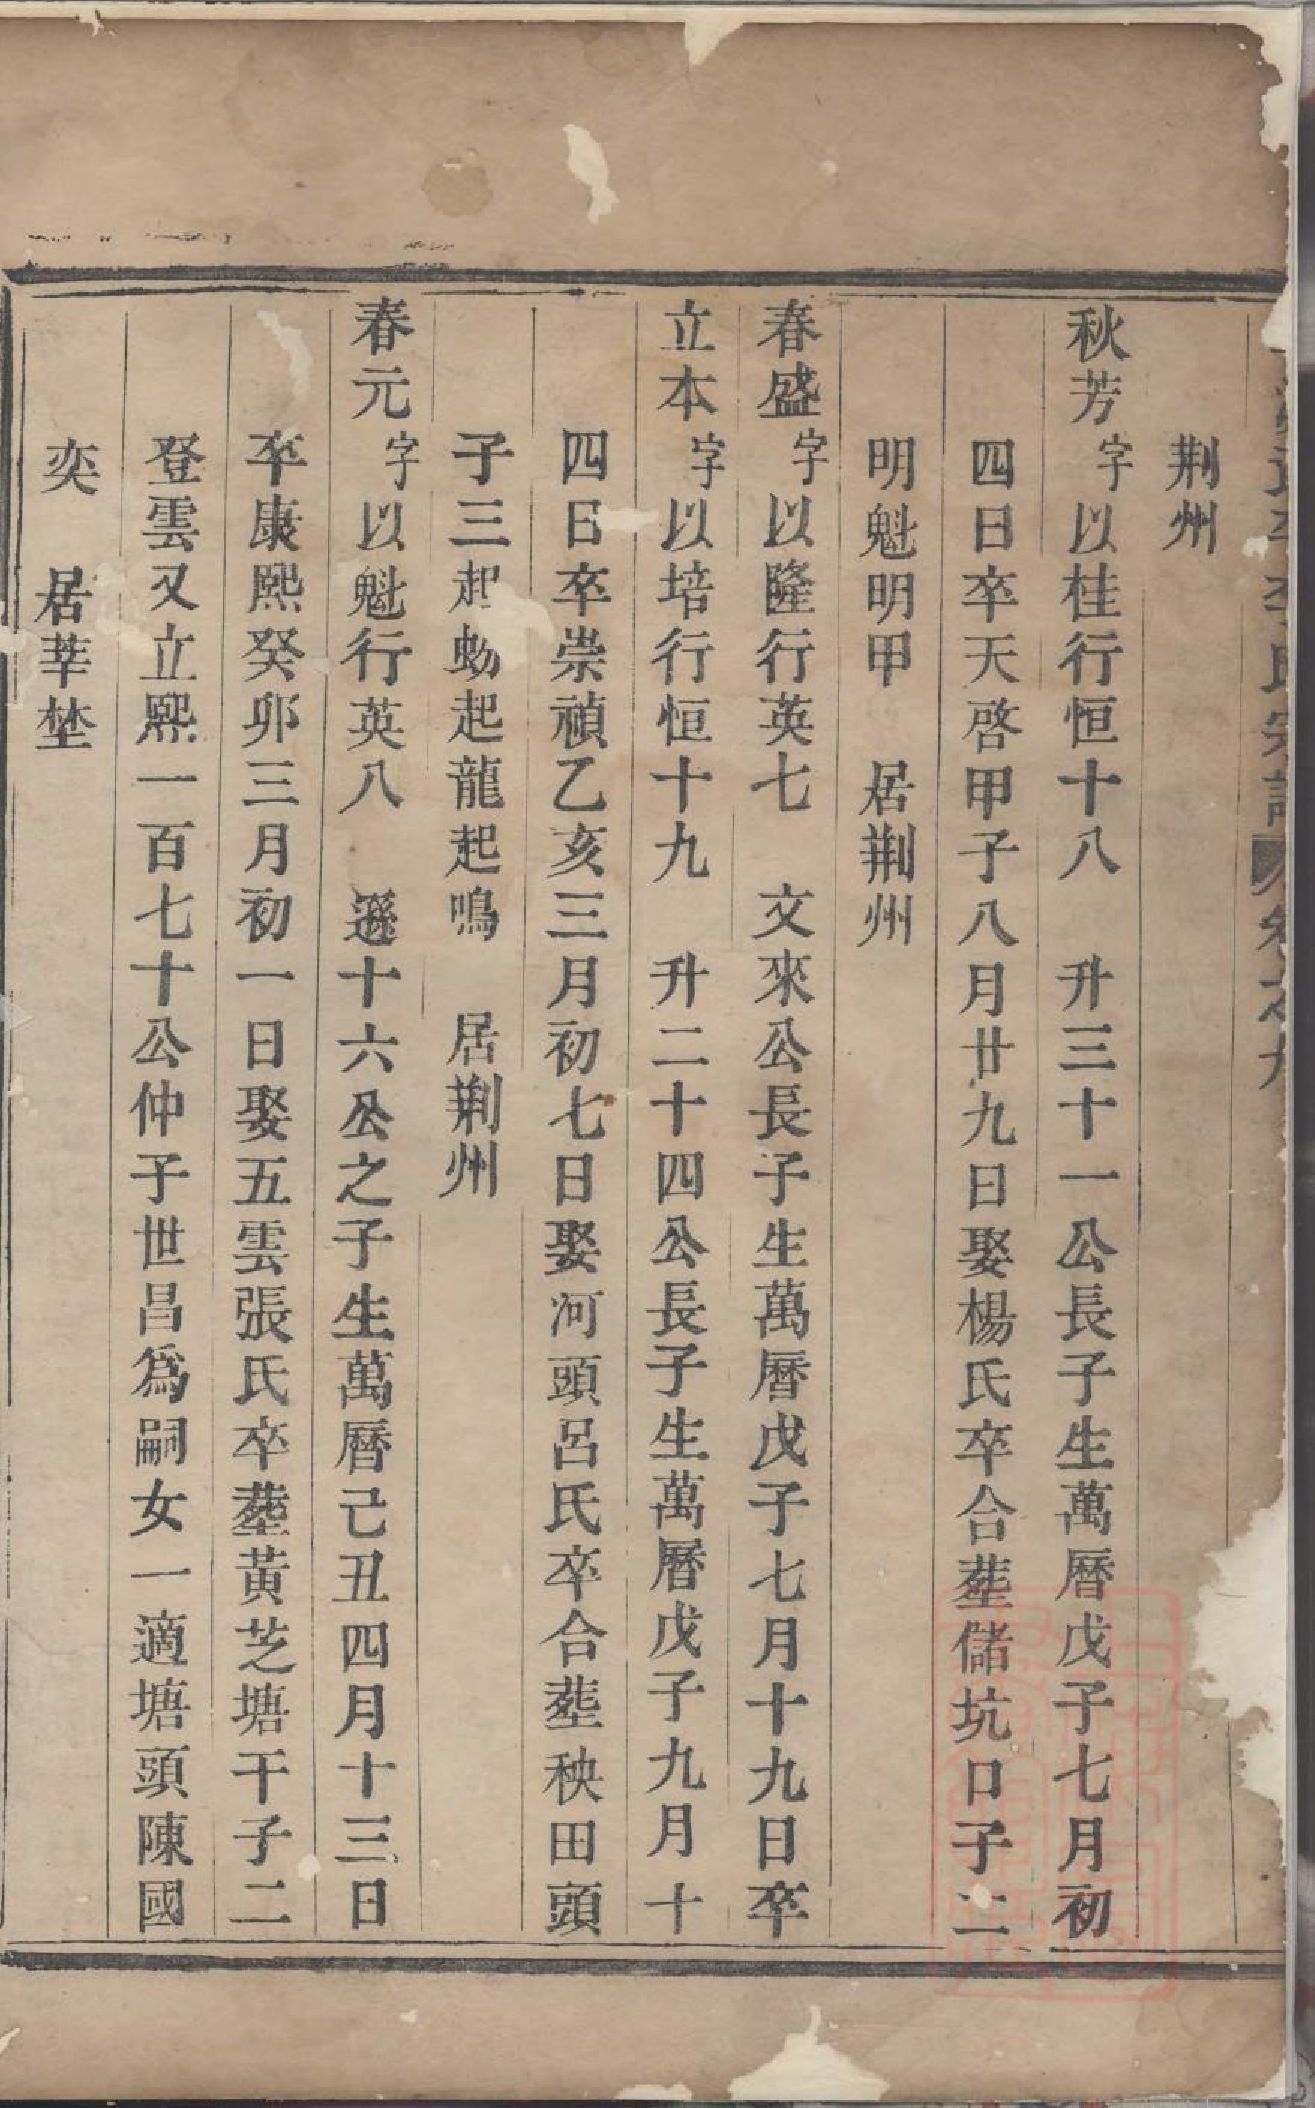 李氏宗譜 卷之九
荆州
秋芳字以桂行恒十八 升三十一公長子生萬曆戊子七月初
四日卒天啓甲子八月廿九日娶楊氏卒合塟儲坑口子二
明魁明甲 居荆州
春盛字以隆行英七 文來公長子生萬曆戊子七月十九日卒
立本字以培行恒十九 升二十四公長子生萬曆戊子九月十
四日卒崇禎乙亥三月初七日娶河頭呂氏卒合塟秧田頭
子三起蛟起龍起鳴 居荆州
春元字以魁行英八 遜十六公之子生萬曆己丑四月十三日
卒康熙癸卯三月初一日娶五雲張氏卒塟黃芝塘干子二
登雲又立熙一百七十公仲子世昌爲嗣女一適塘頭陳國
奕 居莘埜